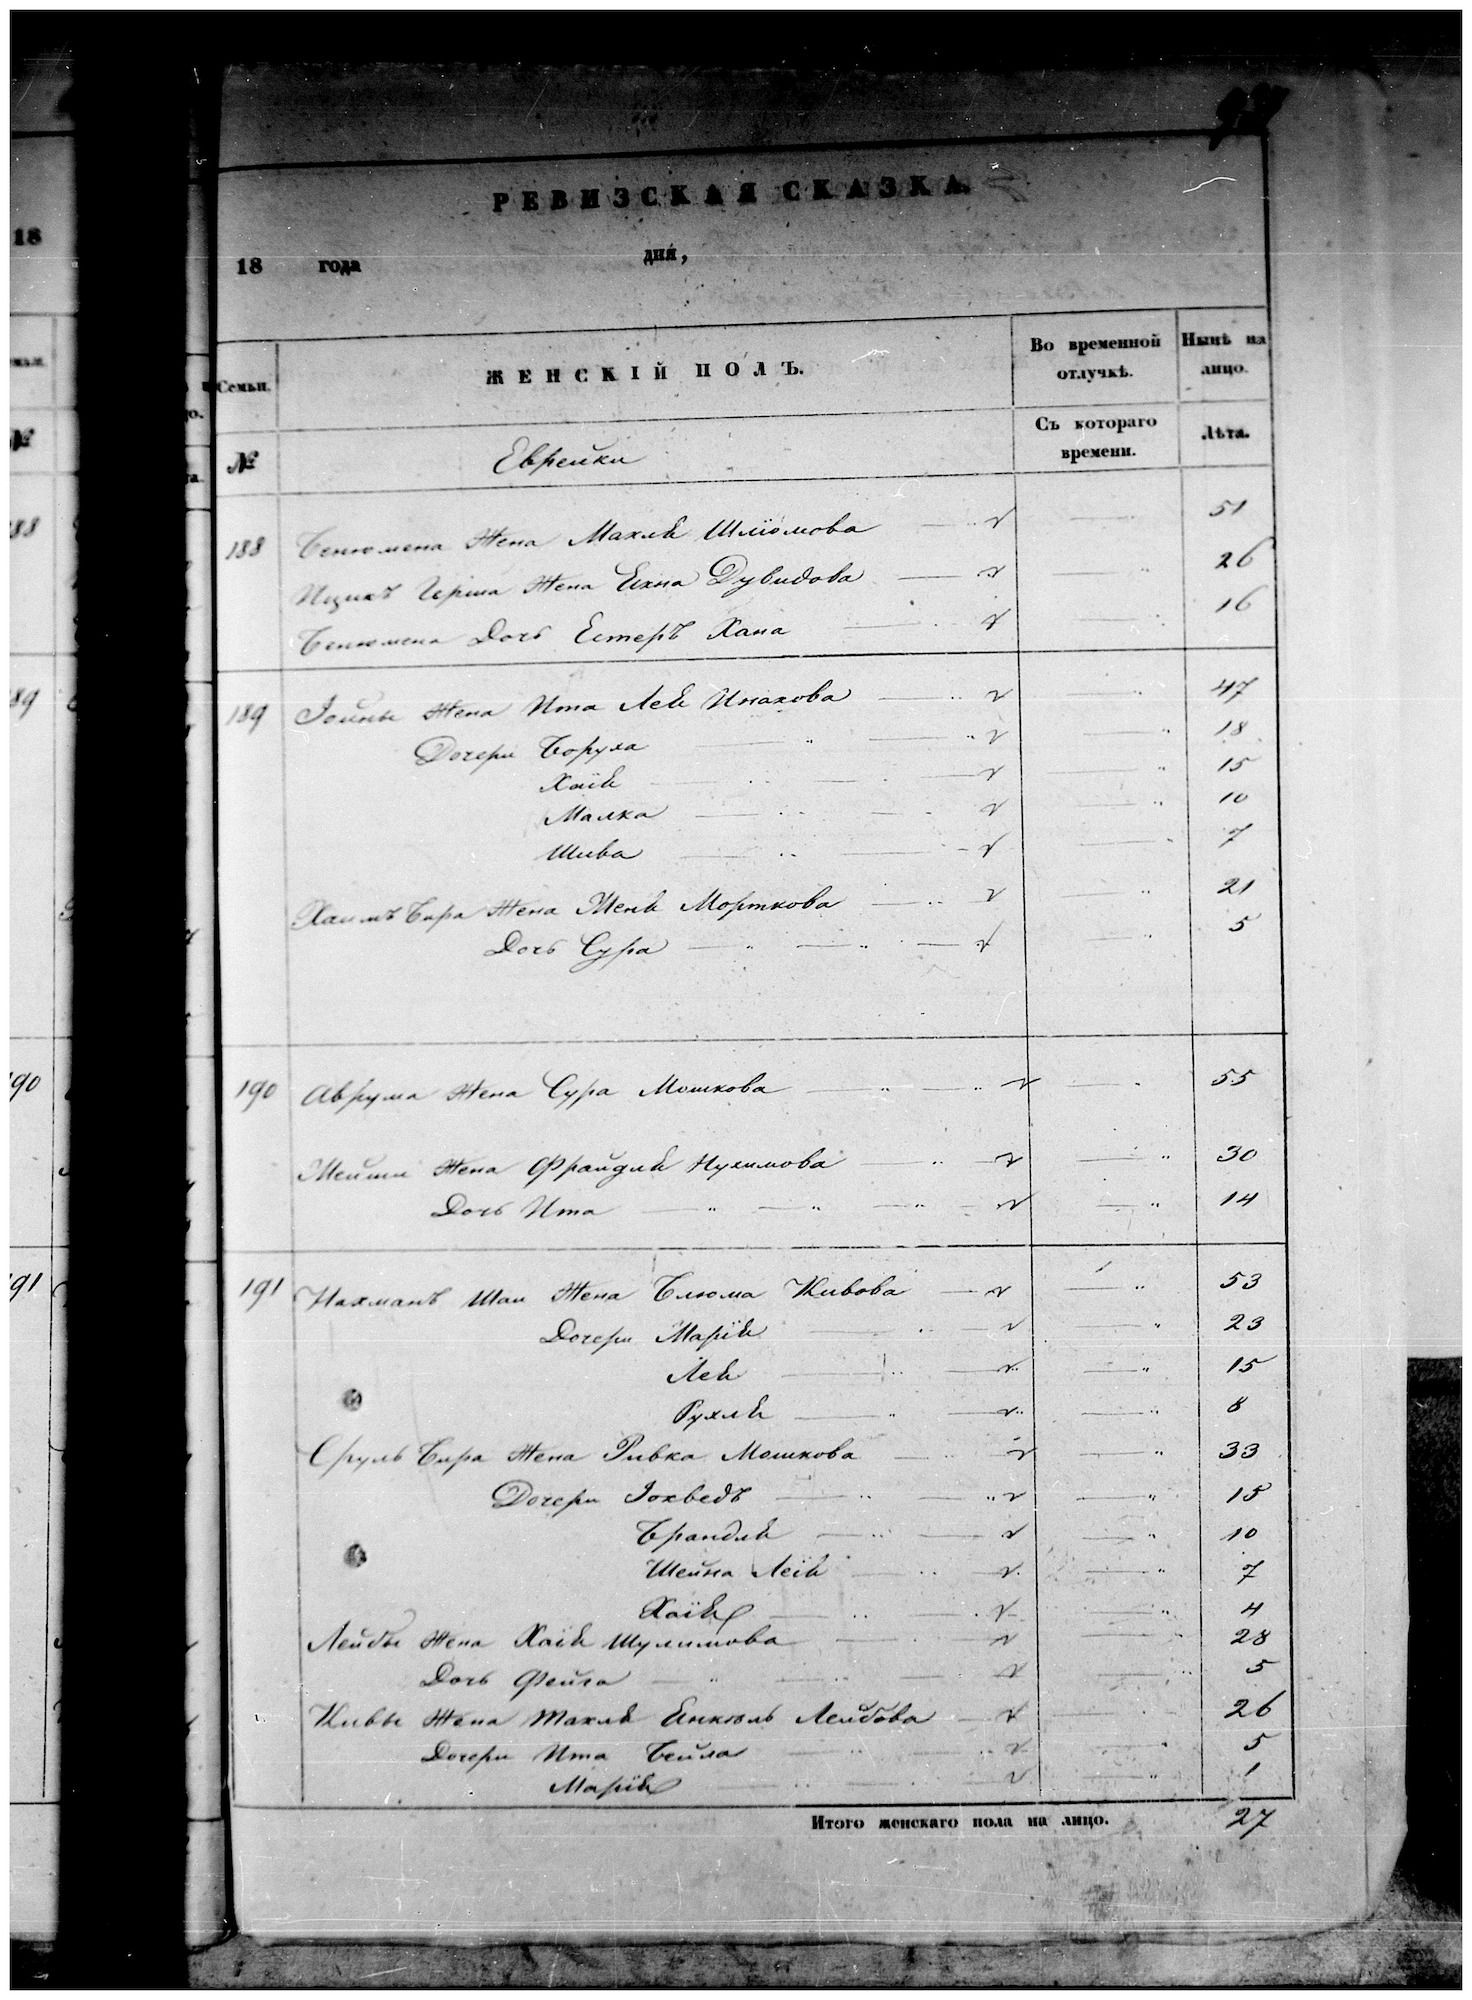 РЕВИЗСКАЯ СКАЗКА.
18 года дня,
Семьи. ЖЕНСКІЙ ПОЛЪ. Во временной отлучкѣ. Нынѣ на лицо.
№ Еврейки Съ котораго времени. Лѣта.
188 Бенюмена Жена Махлѣ Шліомова 51
Ицикъ Герша Жена Ехна Дувидова 26
Бенюмена Дочь Естеръ Хана 16
189 Іойны Жена Ита Леѣ Ицкова 47
Дочери Боруха 18
Хаіѣ 15
Малка 10
Шива 7
Хаимъ Бера Жена Менѣ Морткова 21
Дочь Сура 5
190 Аврума Жена Сура Мошкова 55
Мейши Жена Фрайдлѣ Нухимова 30
Дочь Ита 14
191 Нахманъ Шаи Жена Блюма Кивова 53
Дочери Маріѣ 23
Леѣ 15
Рухлѣ 8
Сруль Бера Жена Ривка Мошкова 33
Дочери Іохведъ 15
Брандлѣ 10
Шейна Леіѣ 7
Хаіѣ 4
Лейбы Жена Хаіѣ Шулимова 28
Дочь Фейга 5
Кивы Жена Махлѣ Енкюль Лейбова 26
Дочери Ита Бейла 5
Маріѣ 1
Итого женскаго пола на лицо. 27
18
188
189
190
191